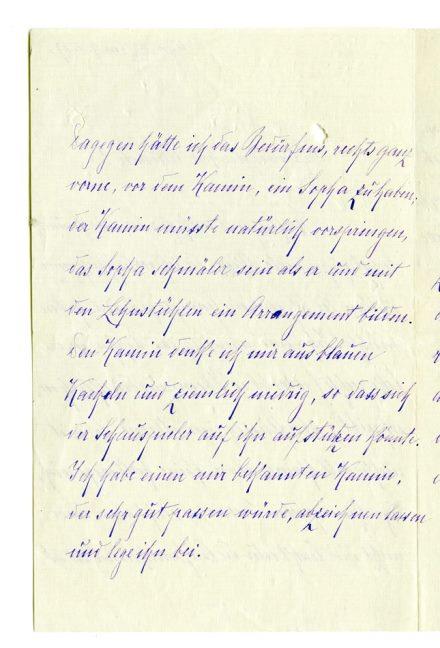 Dagegen hätte ich das Bedürfnis, rechts ganz
vorne, vor dem Kamin, ein Sopha zu haben;
der Kamin müsste natürlich vorspringen,
das Sopha schmäler sein als er und mit
den Lehnstühlen ein Arrangement bilden.
Den Kamin denke ich mir aus blauen
Kacheln und ziemlich niedrig, so dass sich
der Schauspieler auf ihn aufstützen könnte.
Ich habe einen mir bekannten Kamin,
der sehr gut passen würde, abzeichnen lassen
und lege ihn bei.